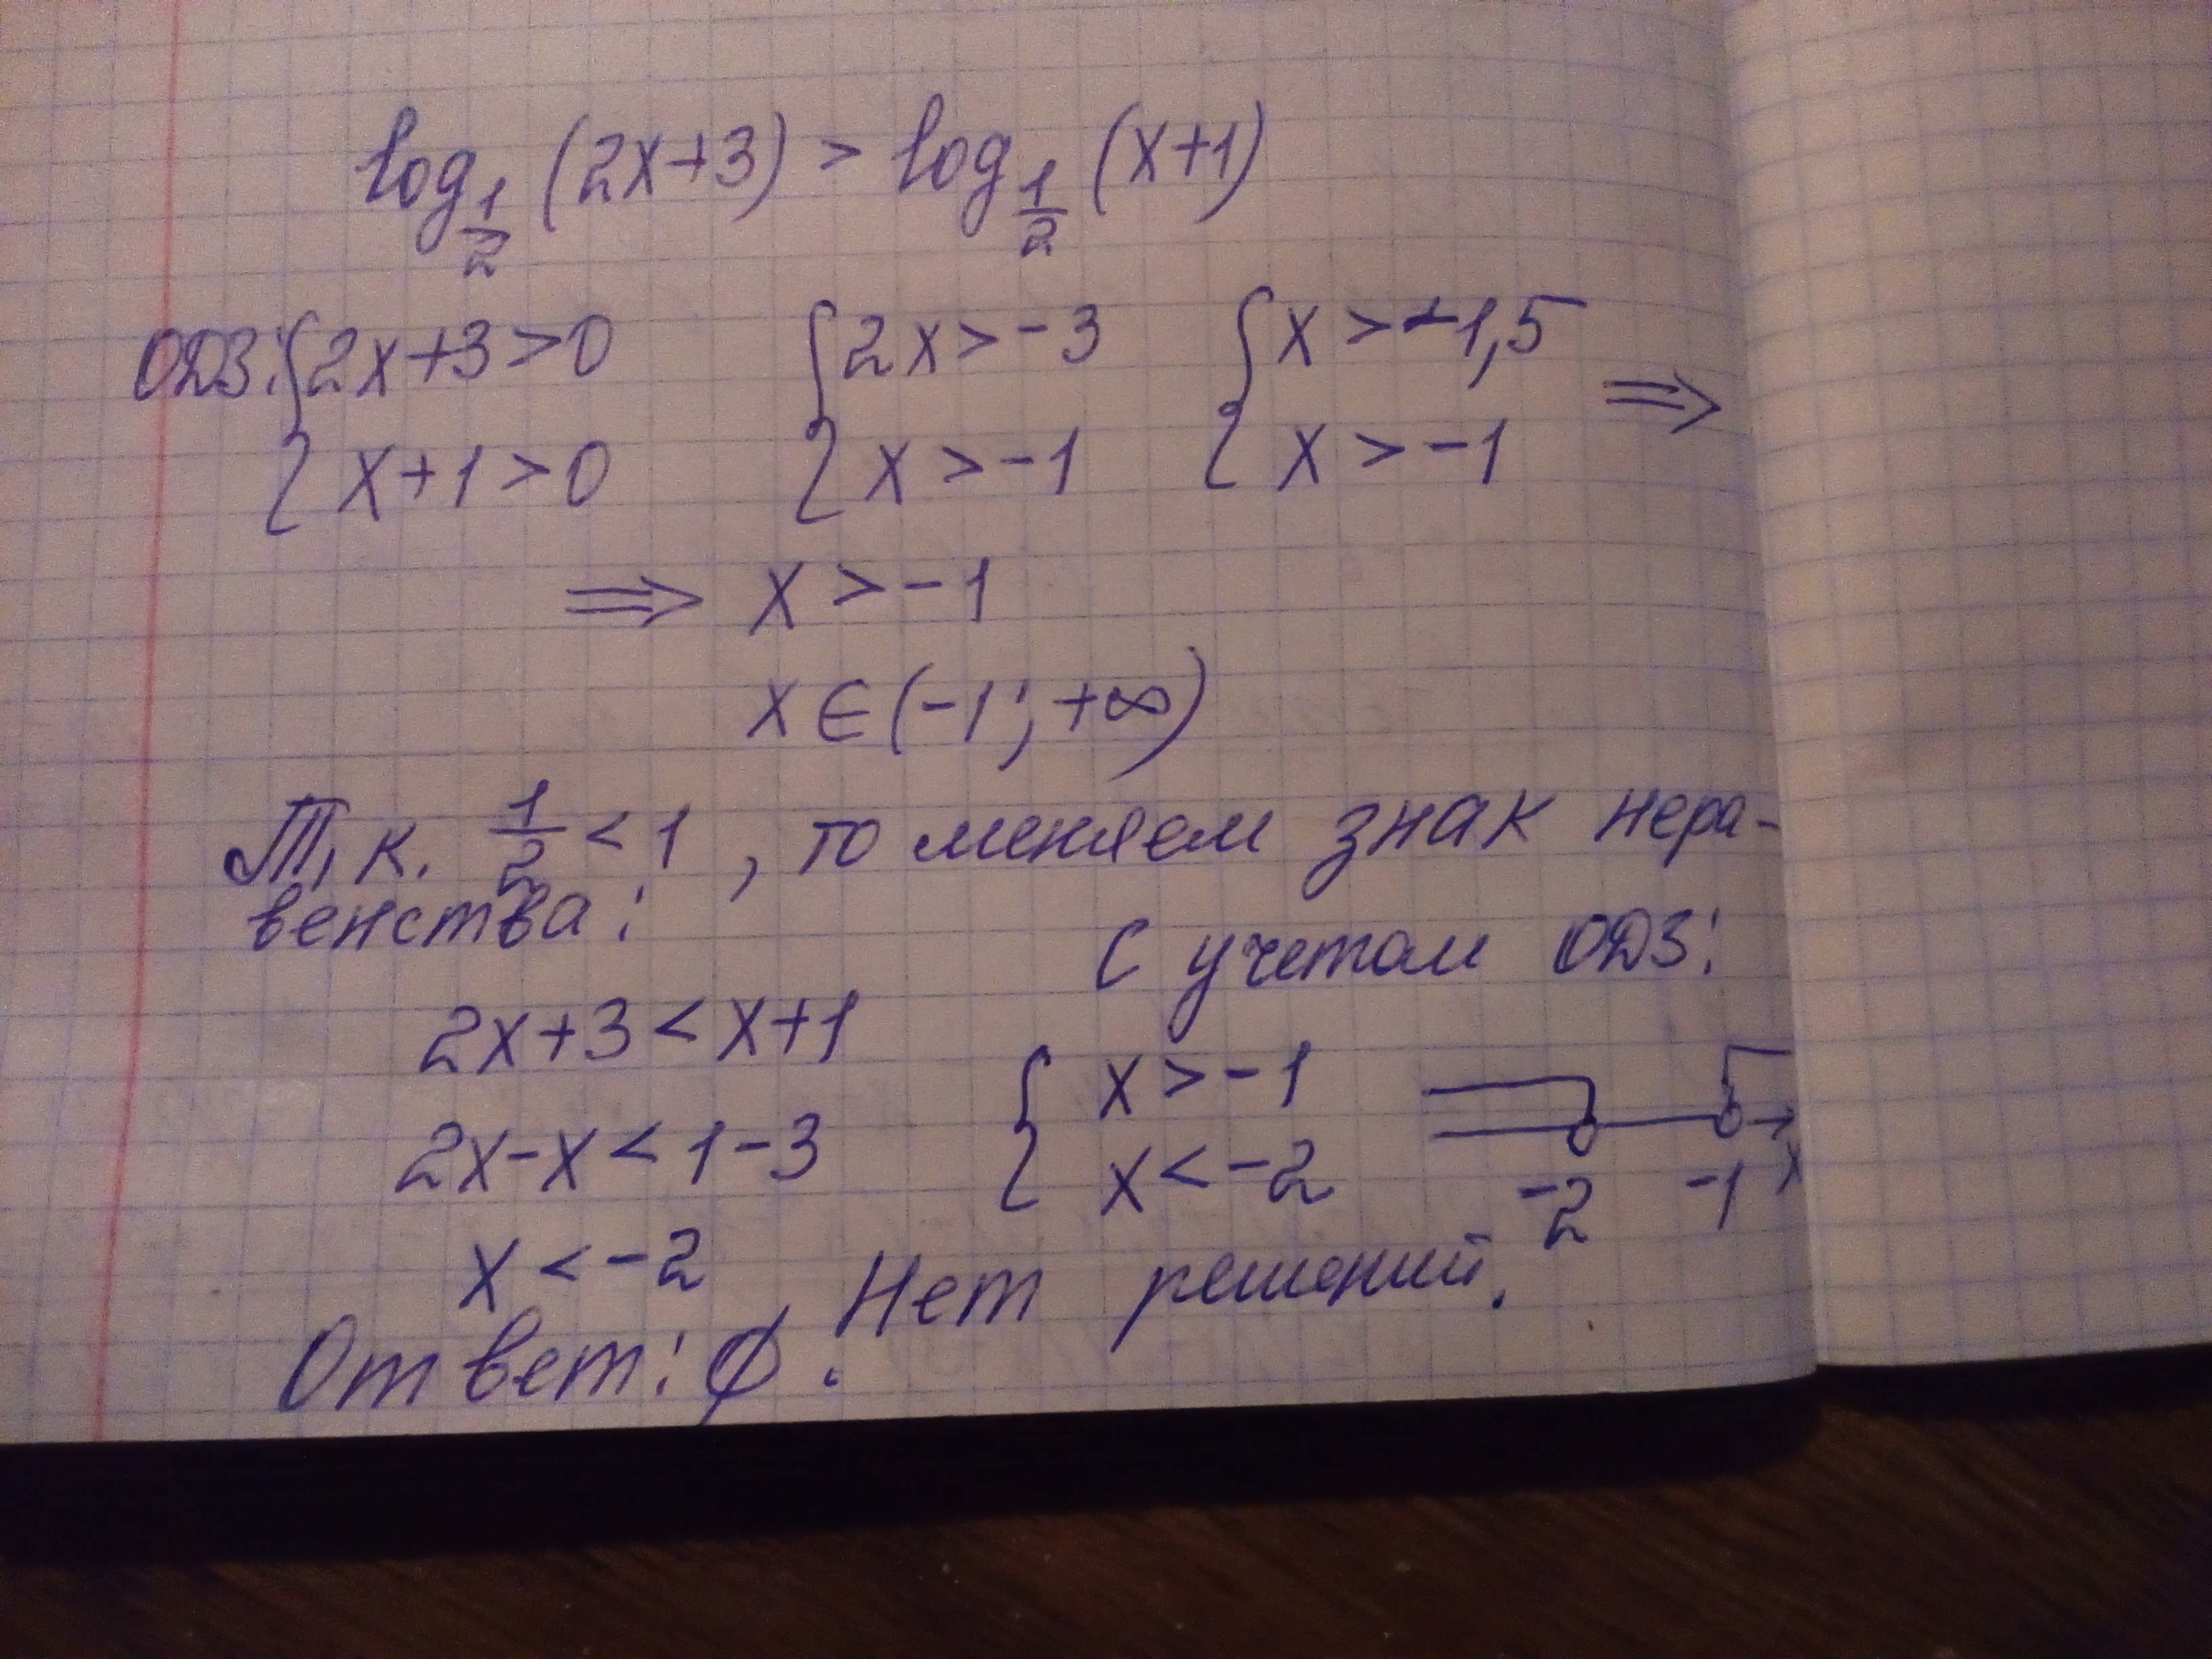 log 1/2 (2x+3) > log 1/2 (x+1)
ОДЗ: { 2x+3>0 { 2x>-3 { x>-1,5
{ x+1>0 { x>-1 { x>-1 ⇒
⇒ x>-1
x∈(-1;+∞)
Т.к. 1/2<1, то меняем знак нера-
венства:
2x+3<x+1
2x-x<1-3
x<-2
С учетом ОДЗ:
{ x>-1
{ x<-2
-2 -1 x
Нет решений.
Ответ: ∅.